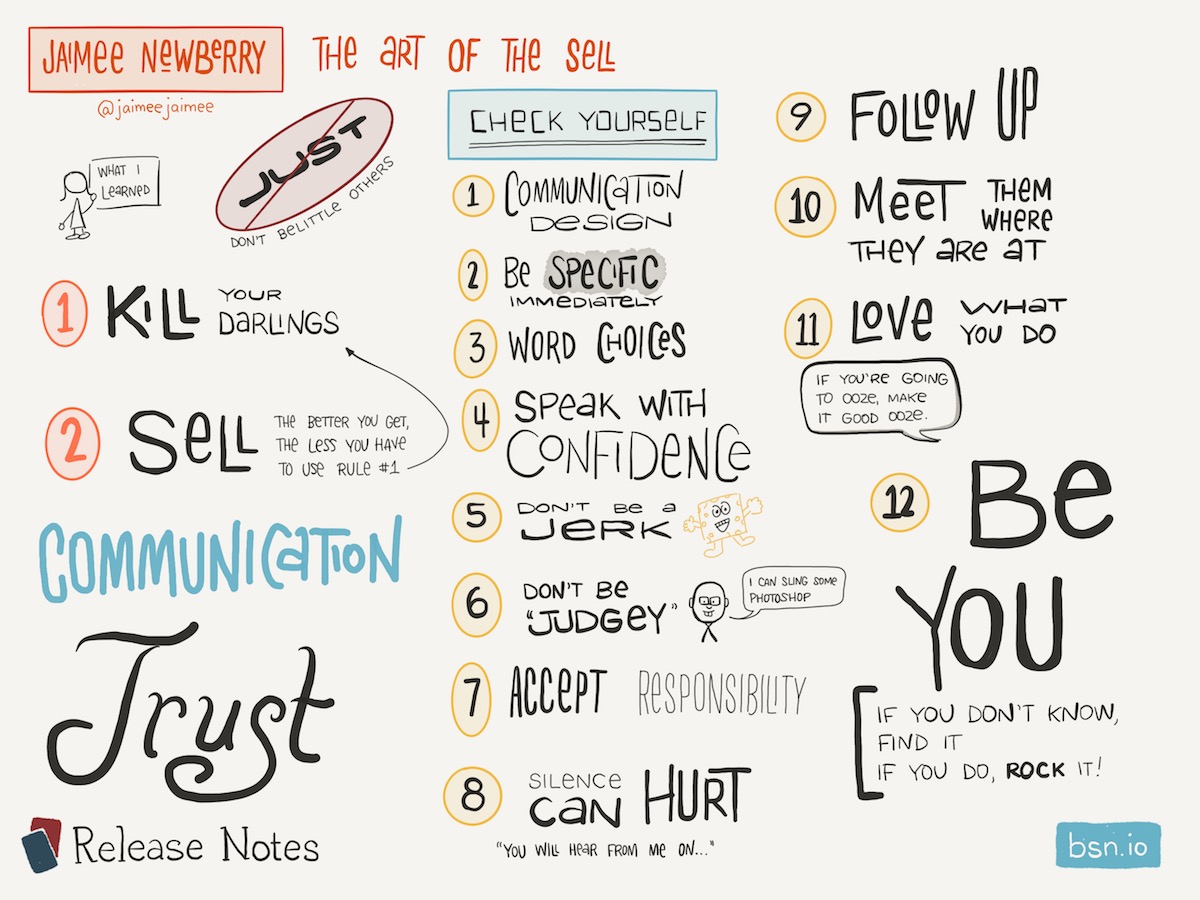 JAIMEE NEWBERRY
THE ART OF THE SELL
@jaimeejaimee
WHAT I
LEARNED
JUST
DON'T BELITTLE OTHERS
1 KILL YOUR
DARLINGS
2 SELL THE BETTER YOU GET,
THE LESS YOU HAVE
TO USE RULE #1
COMMUNICATION
Trust
Release Notes
CHECK YOURSELF
1 COMMUNICATION
DESIGN
2 BE SPECIFIC
IMMEDIATELY
3 WORD CHOICES
4 SPEAK WITH
CONFIDENCE
5 DON'T BE A
JERK
6 DON'T BE
"JUDGEY"
I CAN SLING SOME
PHOTOSHOP
7 ACCEPT RESPONSIBILITY
8 SILENCE
CAN HURT
"YOU WILL HEAR FROM ME ON..."
9 FOLLOW UP
10 MEET THEM
WHERE
THEY ARE AT
11 LOVE WHAT
YOU DO
IF YOU'RE GOING
TO OOZE, MAKE
IT GOOD OOZE.
12 BE
YOU
IF YOU DON'T KNOW,
FIND IT
IF YOU DO, ROCK IT!
bsn.io